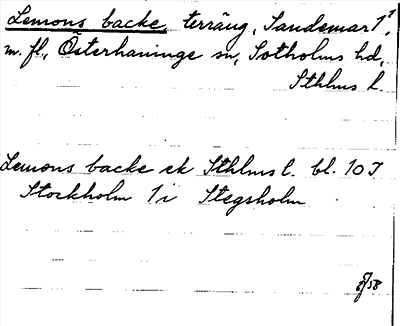 Lemons backe, terräng, Sandemar 1¹,
m. fl., Österhaninge sn, Sotholms hd,
Sthlms l.
Lemons backe ek Sthlms l. bl. 10 J
Stockholm 1 i Stegsholm